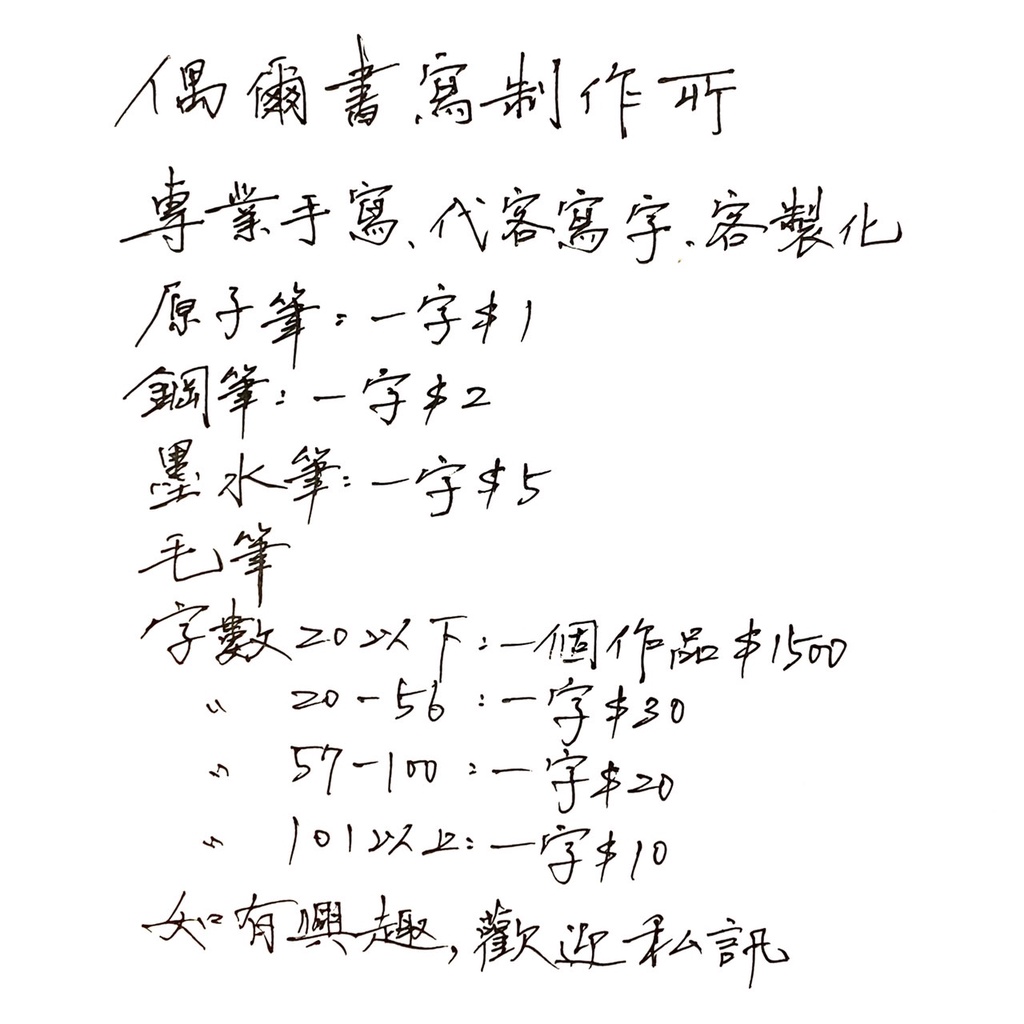 偶爾書寫制作所
專業手寫、代客寫字、客製化
原子筆:一字$1
鋼筆:一字$2
墨水筆:一字$5
毛筆
字數20以下:一個作品$1500
〃 20-56:一字$30
〃 57-100:一字$20
〃 101以上:一字$10
如有興趣,歡迎私訊